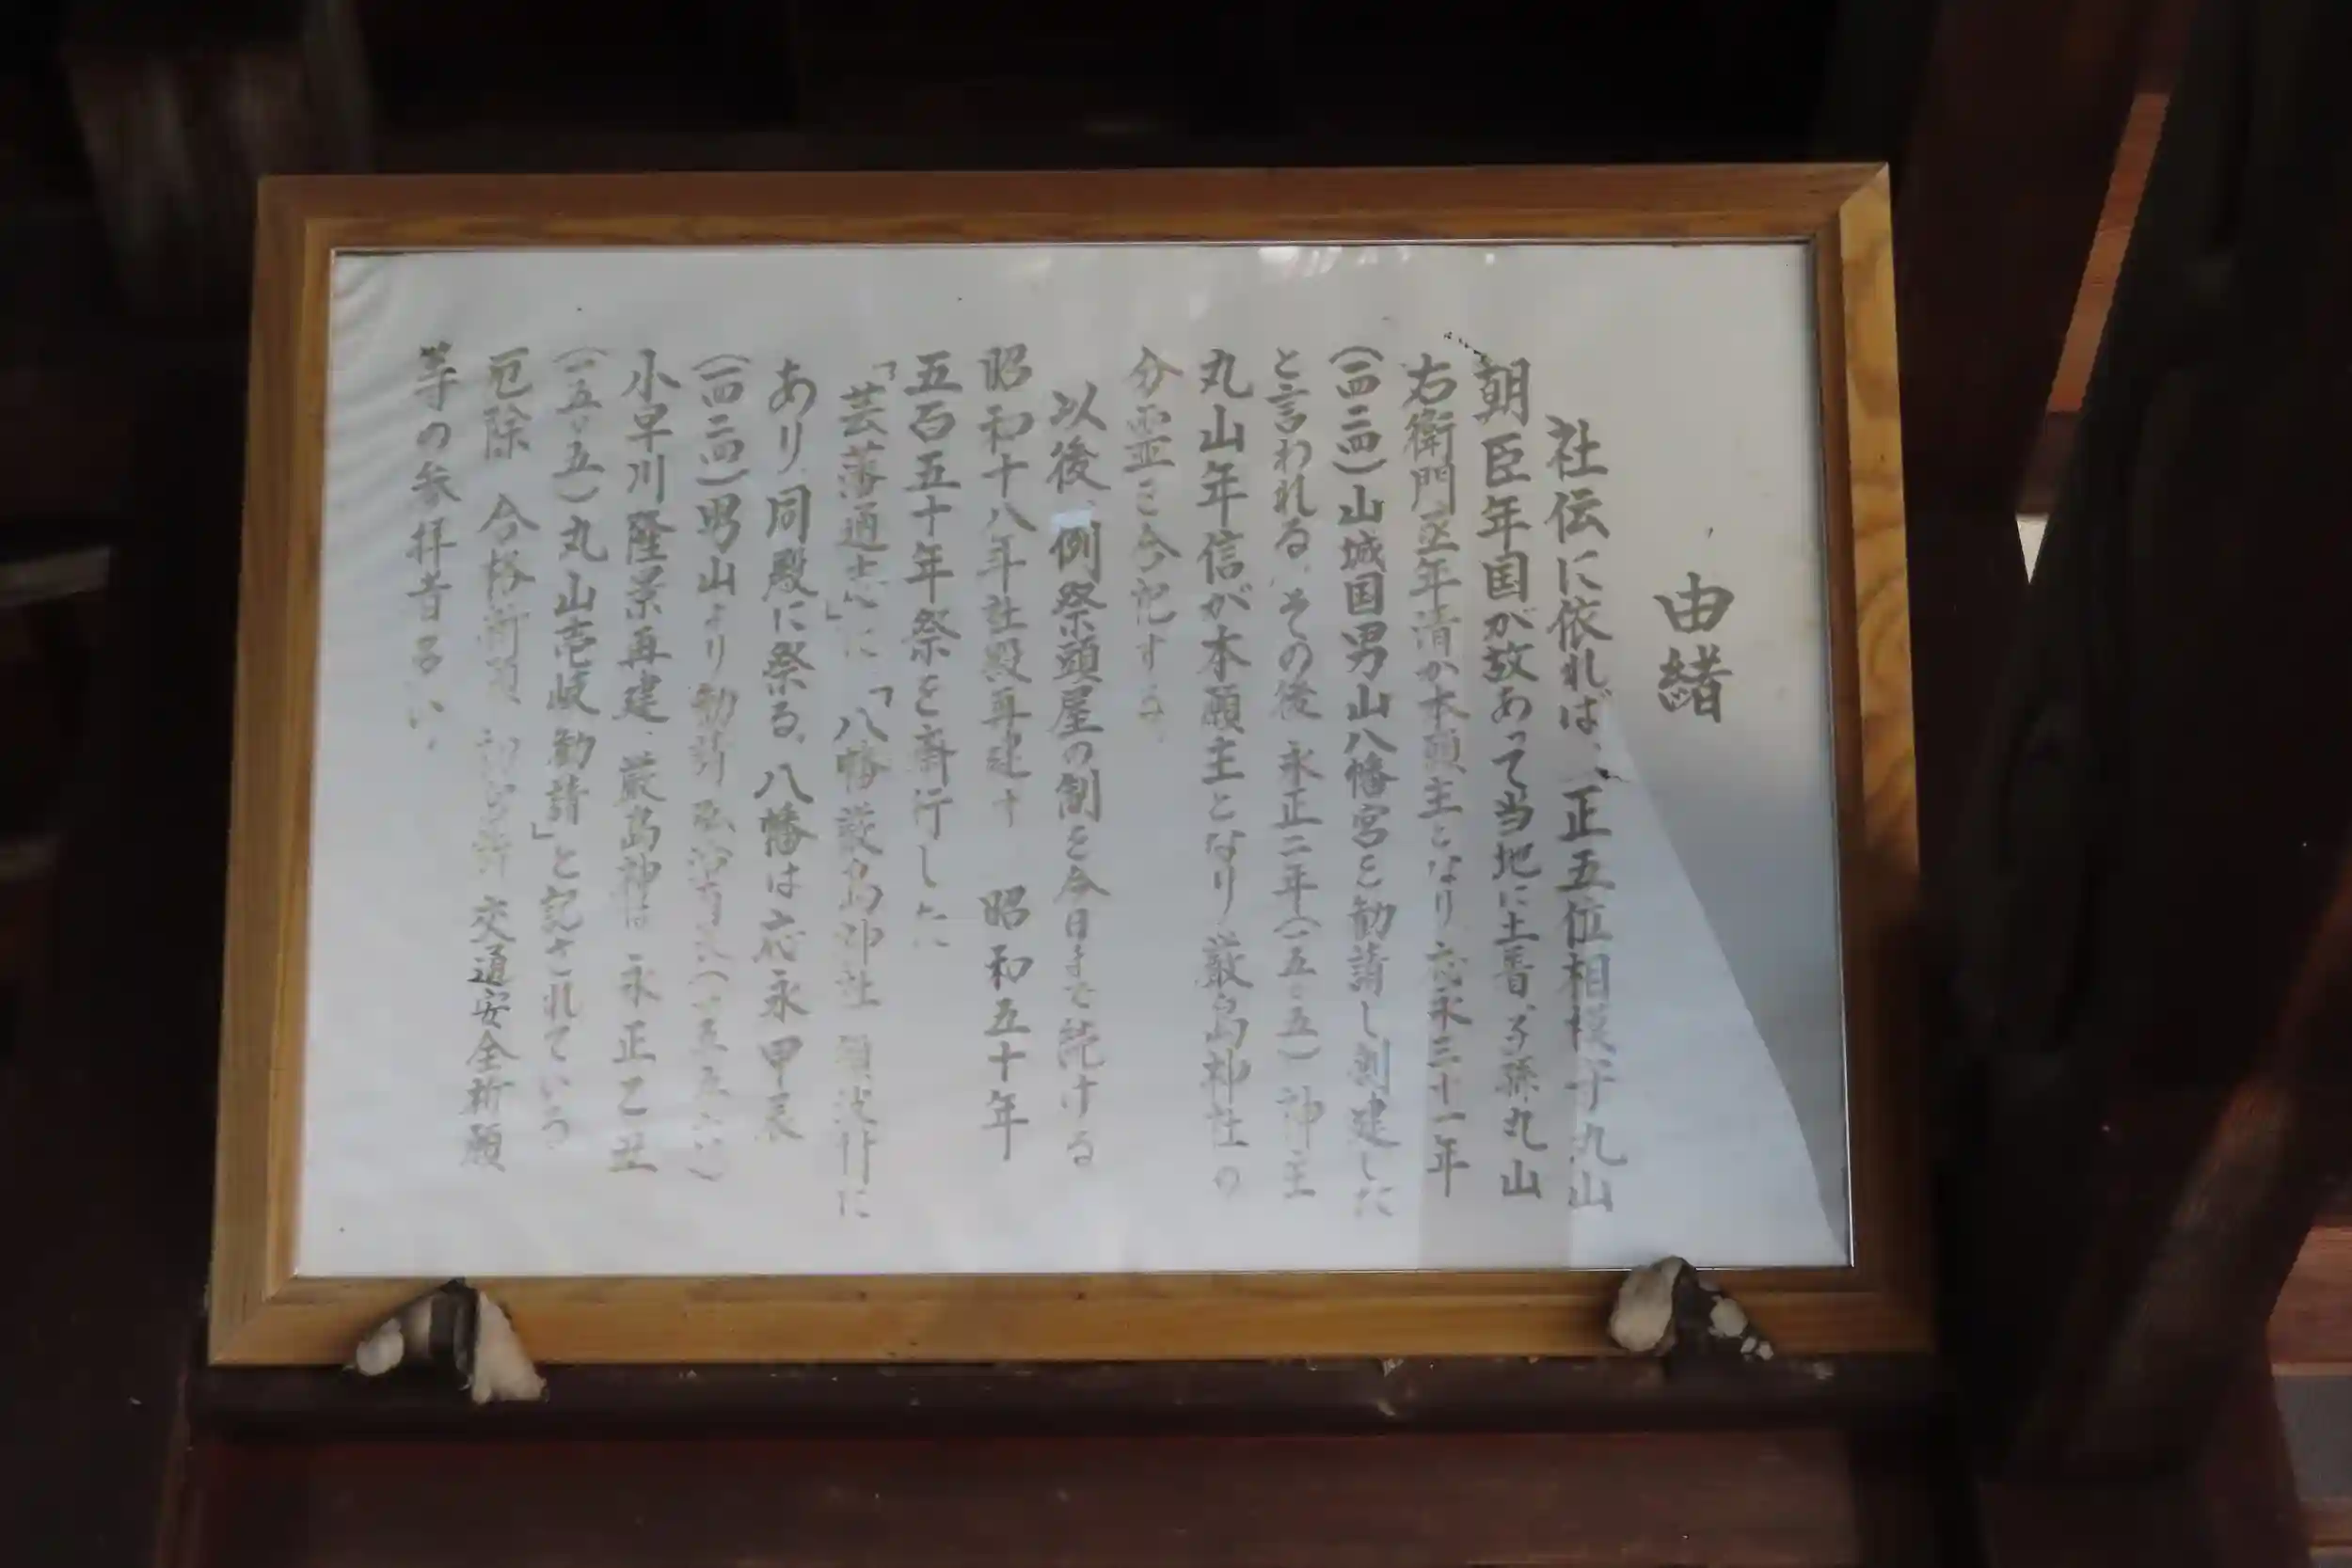 由緒
社伝に依れば、正五位相模守丸山
朝臣年国が故あって当地に土着、子孫丸山
右衛門亟年清が本願主となり応永三十一年
(一四二四)山城国男山八幡宮を勧請し創建した
と言われる。その後永正二年(一五〇五)神主
丸山年信が本願主となり厳島神社の
分霊を合祀する。
以後、例祭頭屋の制を今日まで続ける
昭和十八年社殿再建す 昭和五十年
五百五十年祭を斎行した
「芸藩通志」に「八幡厳島神社 須波村に
あり、同殿に祭る、八幡は応永甲辰
(一四二四)男山より勧請
小早川隆景再建、厳島神は 永正乙丑
(一五〇五)丸山壱岐勧請」と記されている
厄除 合格祈願 初宮詣 交通安全祈願
等の参拝者多い。